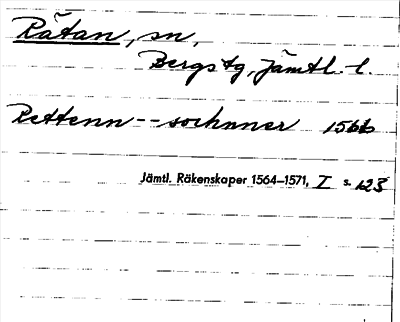 Rätan, sn,
Bergs tg, Jämtl. l.
Rettenn -- sochnner 1566
Jämtl. Räkenskaper 1564–1571, I s. 123